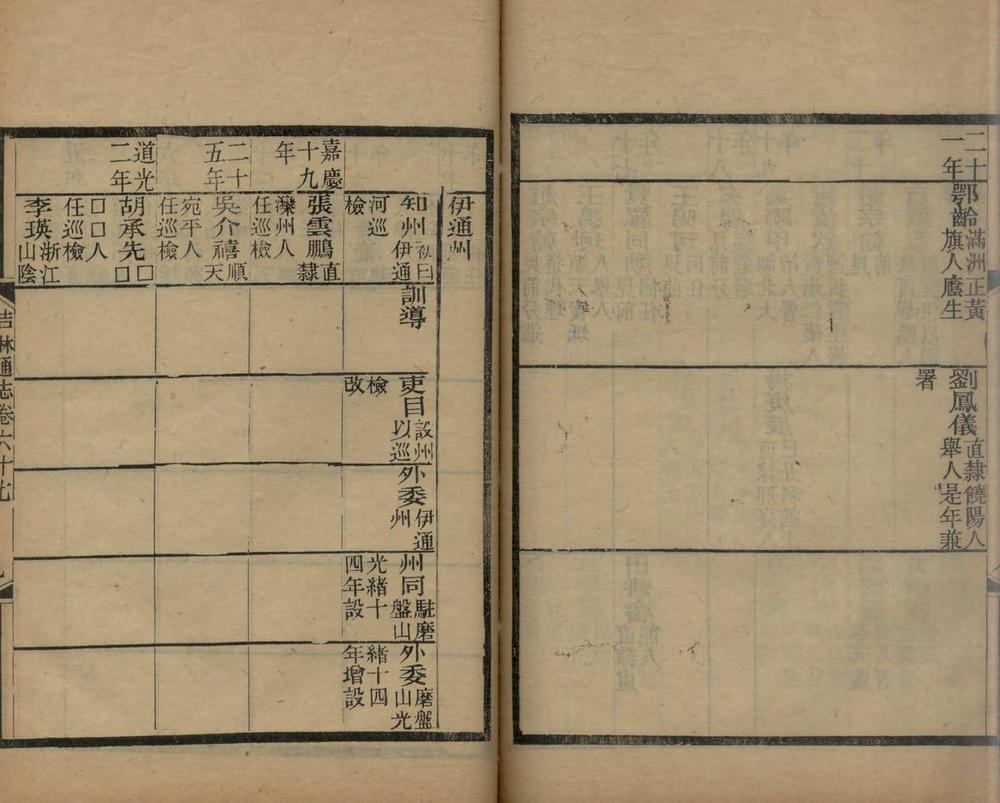 二十一年
鄂齡滿洲正黃旗人廕生
劉鳳儀直隸饒陽人舉人是年兼署
伊通州
知州伊通河巡檢
訓導
吏目設州以巡檢改
外委伊通州
州同駐磨盤山光緒十四年設
外委磨盤山光緒十四年增設
嘉慶十九年
張雲鵬直隸灤州人任巡檢
二十五年
吳介禧順天宛平人任巡檢
道光二年
胡承先□□□人任巡檢
李瑛浙江山陰
吉林通志卷六十七